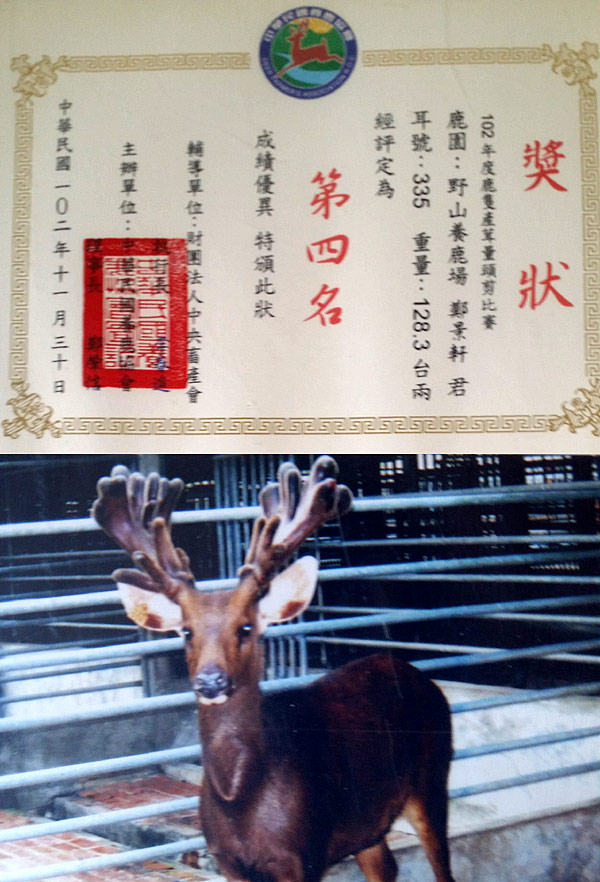 中華民國養鹿協會
獎狀
102年度鹿隻產茸量頭剪比賽
鹿園：野山養鹿場 鄭景軒 君
耳號：335 重量：128.3台兩
經評定為
第四名
成績優異 特頒此狀
輔導單位：財團法人中央畜產會
執行長
主辦單位：中華民國養鹿協會
理事長
中華民國一〇二年十一月三十日